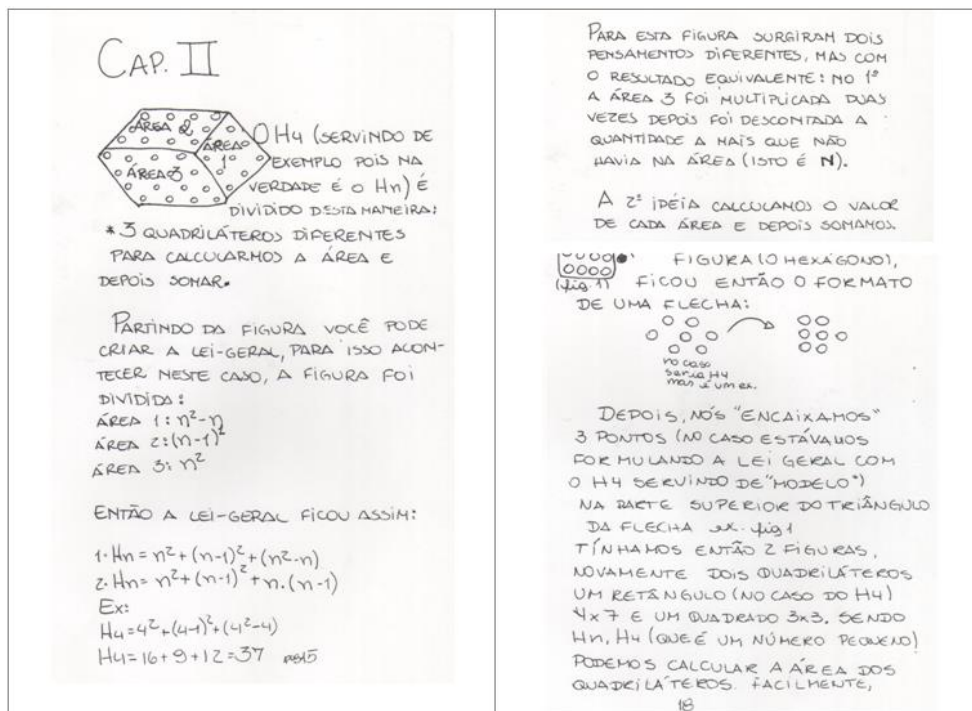 CAP. II
ÁREA 2
ÁREA 1
ÁREA 3
O H4 (SERVINDO DE
EXEMPLO POIS NA
VERDADE É O Hn) É
DIVIDIDO DESTA MANEIRA:
* 3 QUADRILÁTEROS DIFERENTES
PARA CALCULARMOS A ÁREA E
DEPOIS SOMAR.
PARTINDO DA FIGURA VOCÊ PODE
CRIAR A LEI-GERAL, PARA ISSO ACON-
TECER NESTE CASO, A FIGURA FOI
DIVIDIDA:
ÁREA 1: n²-n
ÁREA 2: (n-1)²
ÁREA 3: n²
ENTÃO A LEI-GERAL FICOU ASSIM:
1. Hn = n² + (n-1)² + (n²-n)
2. Hn = n² + (n-1)² + n.(n-1)
Ex:
H4 = 4² + (4-1)² + (4²-4)
H4 = 16 + 9 + 12 = 37
PARA ESTA FIGURA SURGIRAM DOIS
PENSAMENTOS DIFERENTES, MAS COM
O RESULTADO EQUIVALENTE: NO 1º
A ÁREA 3 FOI MULTIPLICADA DUAS
VEZES DEPOIS FOI DESCONTADA A
QUANTIDADE A MAIS QUE NÃO
HAVIA NA ÁREA (ISTO É N).
A 2ª IDÉIA CALCULAMOS O VALOR
DE CADA ÁREA E DEPOIS SOMAMOS.
FIGURA (O HEXÁGONO),
(fig. 1) FICOU ENTÃO O FORMATO
DE UMA FLECHA:
no caso
seria H4
mas é um ex.
DEPOIS, NÓS "ENCAIXAMOS"
3 PONTOS (NO CASO ESTÁVAMOS
FORMULANDO A LEI GERAL COM
O H4 SERVINDO DE "MODELO")
NA PARTE SUPERIOR DO TRIÂNGULO
DA FLECHA ex. fig 1
TÍNHAMOS ENTÃO 2 FIGURAS,
NOVAMENTE DOIS QUADRILÁTEROS
UM RETÂNGULO (NO CASO DO H4)
4x7 E UM QUADRADO 3x3. SENDO
Hn, H4 (QUE É UM NÚMERO PEQUENO)
PODEMOS CALCULAR A ÁREA DOS
QUADRILÁTEROS. FACILMENTE,
18